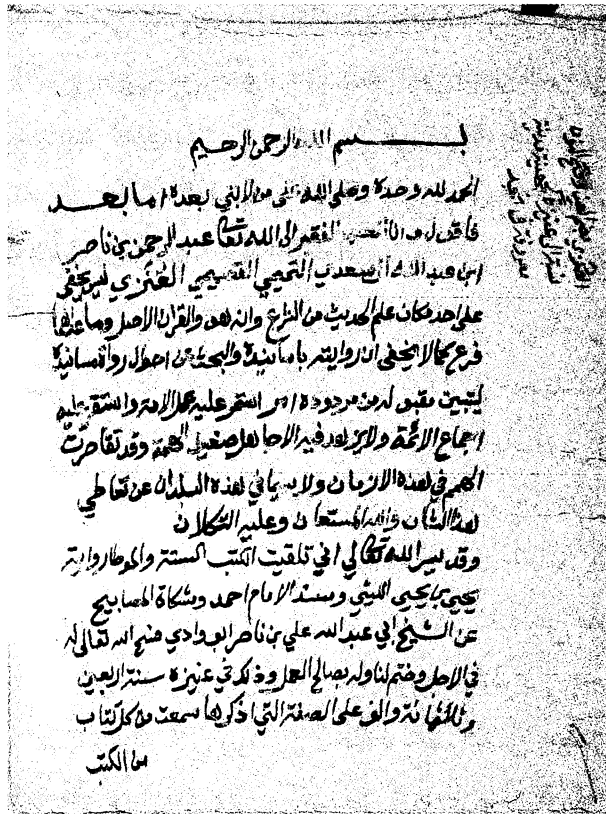 بسم الله الرحمن الرحيم
الحمد لله وحده وصلى الله على من لا نبي بعده اما بعد
فاقول وانا الفقير الى الله تعالى عبد الرحمن بن ناصر
ابن عبد الله آل سعدي التميمي القصيمي العنزي ليس يخفى
على احد مكان علم الحديث من الشرع وانه هو والقران الاصل وما عداهما
فرع كما لا يخفى ان روايته باسانيده والبحث عن احوال رواة اسانيده
ليتبين مقبوله من مردوده امر استقر عليه عمل الامة وانعقد عليه
اجماع الائمة ولا يزهد فيه الا جاهل ضعيف الهمة وقد تقاصرت
الهمم في هذه الازمان ولا سيما في هذه البلدان عن تعاطي
هذا الشان والله المستعان وعليه التكلان
وقد يسر الله تعالى اني تلقيت الكتب الستة والموطا رواية
يحيى بن يحيى الليثي ومسند الامام احمد ومشكاة المصابيح
عن الشيخ ابي عبد الله علي بن ناصر ابو وادي فسح الله تعالى له
في الاجل وختم لنا وله بصالح العمل وذلك في عنيزة سنة اربعين
وثلثمائة والف على الصفة التي اذكرها سمعت من كل كتاب
من الكتب
معروفة في نجد